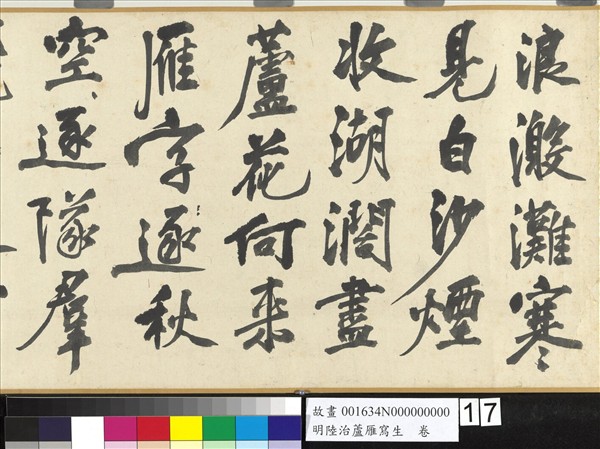 浪激灘寒
見白沙煙
收湖濶盡
蘆花何來
雁字逐秋
空逐隊群
故畫 001634N000000000
明陸治蘆雁寫生 卷
17